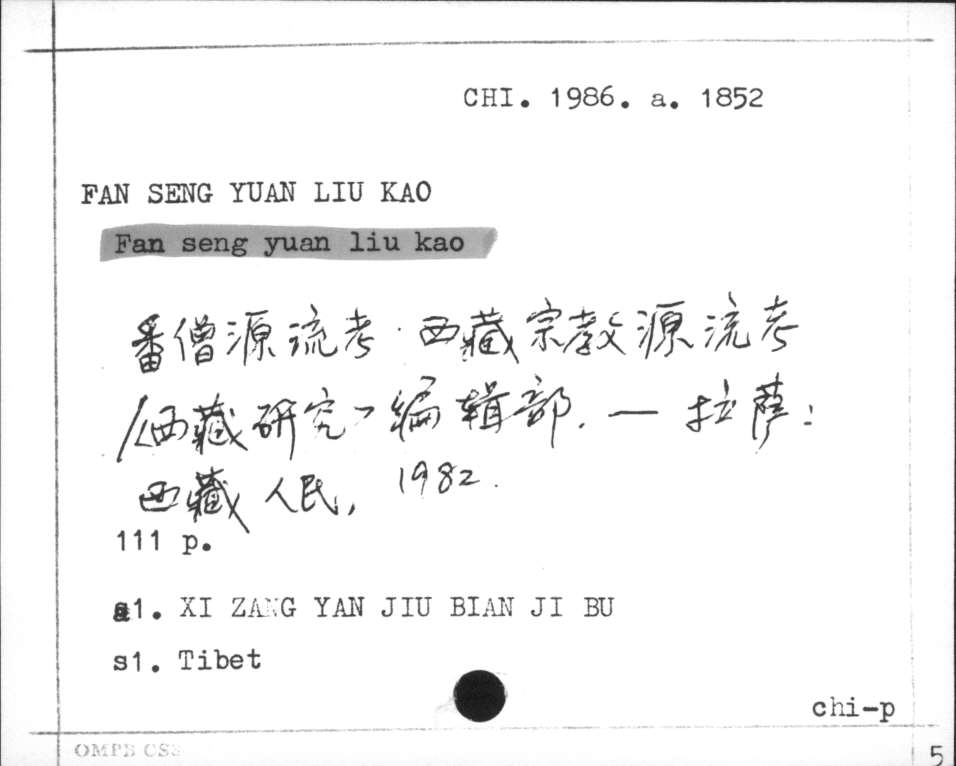 CHI. 1986. a. 1852
FAN SENG YUAN LIU KAO
Fan seng yuan liu kao
番僧源流考·西藏宗教源流考
/《西藏研究》编辑部. — 拉萨:
西藏人民, 1982.
111 p.
a1. XI ZANG YAN JIU BIAN JI BU
s1. Tibet
chi-p
OMPB CS
5